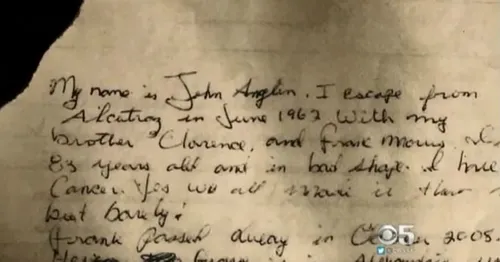 My name is John Anglin. I escape from
Alcatraz in June 1962 with my
brother Clarence, and Frank Morris.
83 years old and in bad shape. I have
Cancer. Yes we all made it that
but barely!
Frank passed away in October 2008.
5